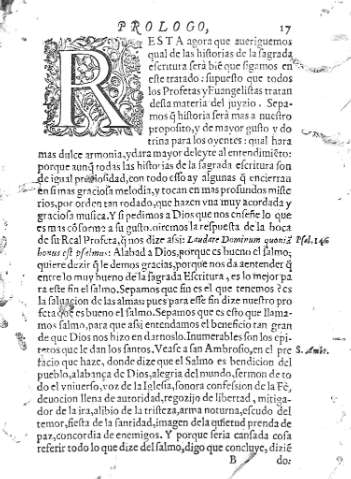 PROLOGO, 17
RESTA agora que aueriguemos
qual de las historias de la sagrada
escritura será biẽ que sigamos en
este tratado: supuesto que todos
los Profetas y Euangelistas tratan
desta materia del juyzio. Sepa-
mos q̃ historia será mas a nuestro
proposito, y de mayor gusto y do
trina para los oyentes: qual hara
mas dulce armonia, y dara mayor deleyte al entendimiẽto:
porque aunq̃ todas las historias de la sagrada escritura son
de igual preciosidad, con todo esso ay algunas q̃ encierran
en si mas graciosa melodia, y tocan en mas profundos miste
rios, por orden tan rodado, que hazen vna muy acordada y
graciosa musica. Y si pedimos a Dios que nos enseñe lo que
es mas cõforme a su gusto, oiremos la respuesta de la boca
de su Real Profeta, q̃ nos dize assi: Laudate Dominum quoniã Psal. 146
bonus est psalmus: Alabad a Dios, porque es bueno el salmo;
quiere dezir q̃ le demos gracias, porque nos da a entender q̃
entre lo muy bueno de la sagrada Escritura, es lo mejor pa
ra este fin el salmo. Sepamos que fin es el que tenemos? es
la saluacion de las almas: pues para esse fin dize nuestro pro
feta que es bueno el salmo. Sepamos que es esto que llama-
mos salmo, para que assi entendamos el beneficio tan gran
de que Dios nos hizo en darnoslo. Inumerables son los epi
tetos que le dan los santos. Vease a san Ambrosio, en el pre S. Amb.
facio que haze, donde dize que el Salmo es bendicion del
pueblo, alabança de Dios, alegria del mundo, sermon de to
do el vniuerso, voz de la Iglesia, sonora confession de la Fè,
deuocion llena de autoridad, regozijo de libertad, mitiga-
dor de la ira, alibio de la tristeza, arma noturna, escudo del
temor, fiesta de la santidad, imagen de la quietud prenda de
paz, concordia de enemigos. Y porque seria cansada cosa
referir todo lo que dize del salmo, digo que concluye, diziẽ
B do: